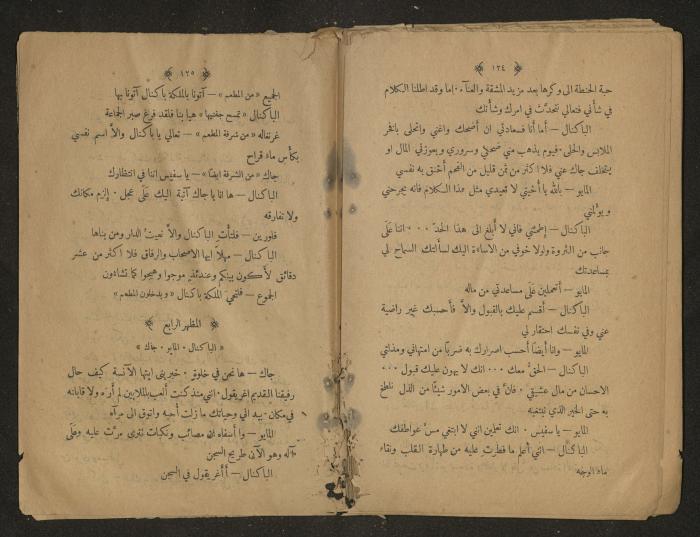 ﴿ ١٢٤ ﴾
حبة الحنطة الى وكرها بعد مزيد المشقة والعنآء. اما وقد اطلنا الكلام
في شأني فتعالي نتحدَّث في امرك وشأنك
الباكنال — أما أنا فسعادتي ان أضحك واغني واتحلى بأفخر
الملابس والحلى. فيوم يذهب مني ضحكي وسروري ويعوزني المال او
يتخلف جاك عني فلا اكثر من ثمن قليل من الفحم أختنق به نفسي
المايو — بالله يا أُخيتي لا تعيدي مثل هذا الكلام فانه يجرحني
ويؤلمني
الباكنال — إطمئني فاني لا أبلغ الى هذا الحدّ ... اننا على
جانب من الثروة ولولا خوفي من الاساءة اليك لسألتك السماح لي
بمساعدتك
المايو — أتحملين على مساعدتي من ماله
الباكنال — أقسم عليك بالقبول والاَّ فأحسبك غير راضية
عني وفي نفسك احتقار لي
المايو — وانا أيضاً أحسب اصرارك به ضرباً من امتهاني ومذلتي
الباكنال — الحقُّ معك ... انك لا يهون عليك قبول ...
الاحسان من مال عشيقي. فانَّ في بعض الامور شيئاً من الذل نلطخ
به حتى الخير الذي نبتغيه
المايو — يا سفيس. انك تعلمين اني لا ابتغي مسَّ عواطفك
الباكنال — انني أعلم ما فطرت عليه من طهارة القلب ونقاء
ماء الوجه
﴿ ١٢٥ ﴾
الجميع «من المطعم» — آتونا بالملكة باكنال آتونا بها
الباكنال «تمسح جفنيها» هيا بنا فلقد فرغ صبر الجماعة
غرنغاله «من شرفة المطعم» — تعالي يا باكنال والاَّ اسم نفسي
بكأس ماء قراح
جاك «من الشرفة ايضاً» — يا سفيس اننا في انتظارك
الباكنال — ها انا يا جاك آتية اليك عَلَى عجل. إلزم مكانك
ولا تفارقه
فلورين — فلتأتِ الباكنال والاَّ نعيتُ الدار ومن بناها
الباكنال — مهلاً ايها الاصحاب والرفاق فلا اكثر من عشر
دقائق لأكون بينكم وعندئذٍ موجوا وهيجوا كما تشاءون
الجموع — فلتحيَ الملكة باكنال «ويدخلون المطعم»
﴿ المظهر الرابع ﴾
«الباكنال. المايو. جاك»
جاك — ها نحن في خلوةٍ. خبريني ايتها الآنسة كيف حال
رفيقنا القديم اغريقول. انني منذ كنت ألعب بالملايين لم أرَه ولا قابلته
في مكان. بيد اني وحياتك ما زلت أحبه واتوق الى مرآه
المايو — وا أسفاه ان مصائب ونكبات تترى مرَّت عليه وعَلَى
آله وهو الآن طريح السجن
الباكنال — أأغريقول في السجن